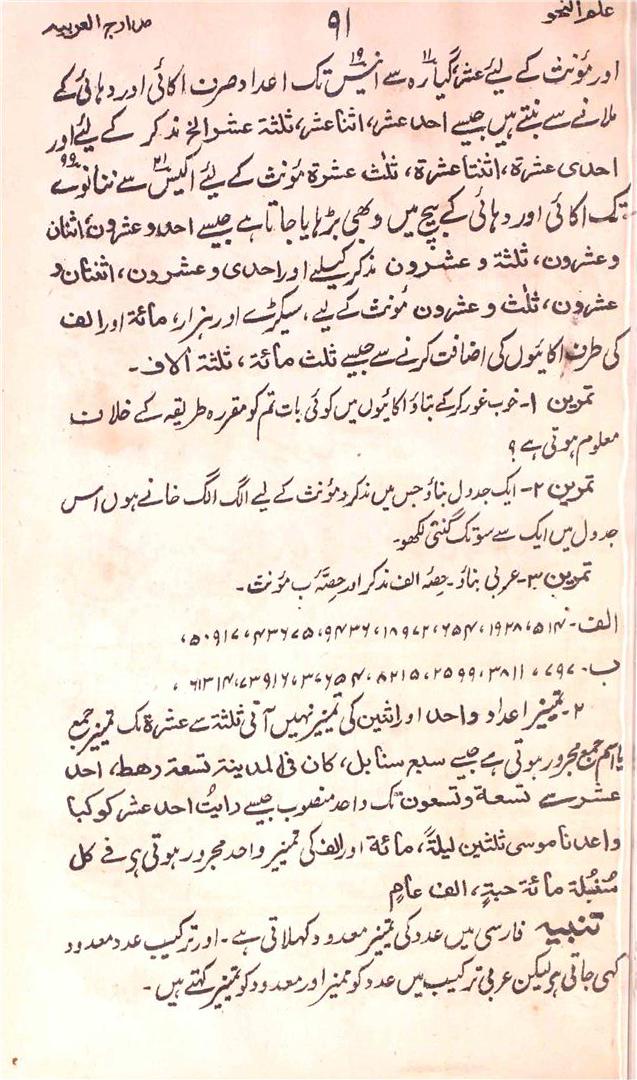 علم النحو ۹۱ مدارج العربیہ
اور مؤنث کے لیے عشر، گیارہ ۱۱ سے انیس ۱۹ تک اعداد صرف اکائی اور دہائی کے
ملانے سے بنتے ہیں جیسے احد عشر، اثنا عشر، ثلثۃ عشر الخ مذکر کے لیے اور
احدی عشرۃ، اثنتا عشرۃ، ثلٰث عشرۃ مؤنث کے لیے اکیس ۲۱ سے ننانوے ۹۹
تک اکائی اور دہائی کے بیچ میں و بھی بڑہایا جاتا ہے جیسے احد و عشرون، اثنان
و عشرون، ثلثۃ و عشرون مذکر کیلیے اور احدی و عشرون، اثنتان و
عشرون، ثلٰث و عشرون مؤنث کے لیے، سیکڑے اور ہزار، مائۃ اور الف
کی طرف اکائیوں کی اضافت کرنے سے جیسے ثلث مائۃ، ثلثۃ الاف۔
تمرین ۱۔ خوب غور کر کے بتاؤ اکائیوں میں کوئی بات تم کو مقررہ طریقہ کے خلاف
معلوم ہوتی ہے؟
تمرین ۲۔ ایک جدول بناؤ جس میں مذکر و مؤنث کے لیے الگ الگ خانے ہوں اس
جدول میں ایک سے سو تک گنتی لکھو۔
تمرین ۳۔ عربی بناؤ۔ حصۂ الف مذکر اور حصۂ ب مؤنث۔
الف۔ ۵۱۴، ۱۹۲۸، ۶۵۴، ۱۸۹۷۲، ۹۴۳۶، ۴۳۶۷۵، ۵۰۹۱۷،
ب۔ ۷۹۷، ۳۸۱۱، ۲۵۹۹، ۸۲۱۵، ۳۷۶۵۴، ۷۳۹۱۶، ۶۱۳۱۴،
۲۔ تمیز اعداد واحد اور اثنین کی تمیز نہیں آتی ثلثۃ سے عشرۃ تک تمیز جمع
یا اسم جمع مجرور ہوتی ہے جیسے سبع سنابل، کان فی المدینۃ تسعۃ رھط، احد
عشر سے تسعۃ و تسعون تک واحد منصوب جیسے رایتُ احد عشر کوکبا
واعدنا موسی ثلثین لیلۃً، مائۃ اور الف کی تمیز واحد مجرور ہوتی ہے فی کل
سُنبُلۃ مائۃ حبۃٍ، الف عامٍ
تنبیہ فارسی میں عدد کی تمیز معدود کہلاتی ہے۔ اور ترکیب عدد معدود
کہی جاتی ہی لیکن عربی ترکیب میں عدد کو ممیز اور معدود کو تمیز کہتے ہیں۔